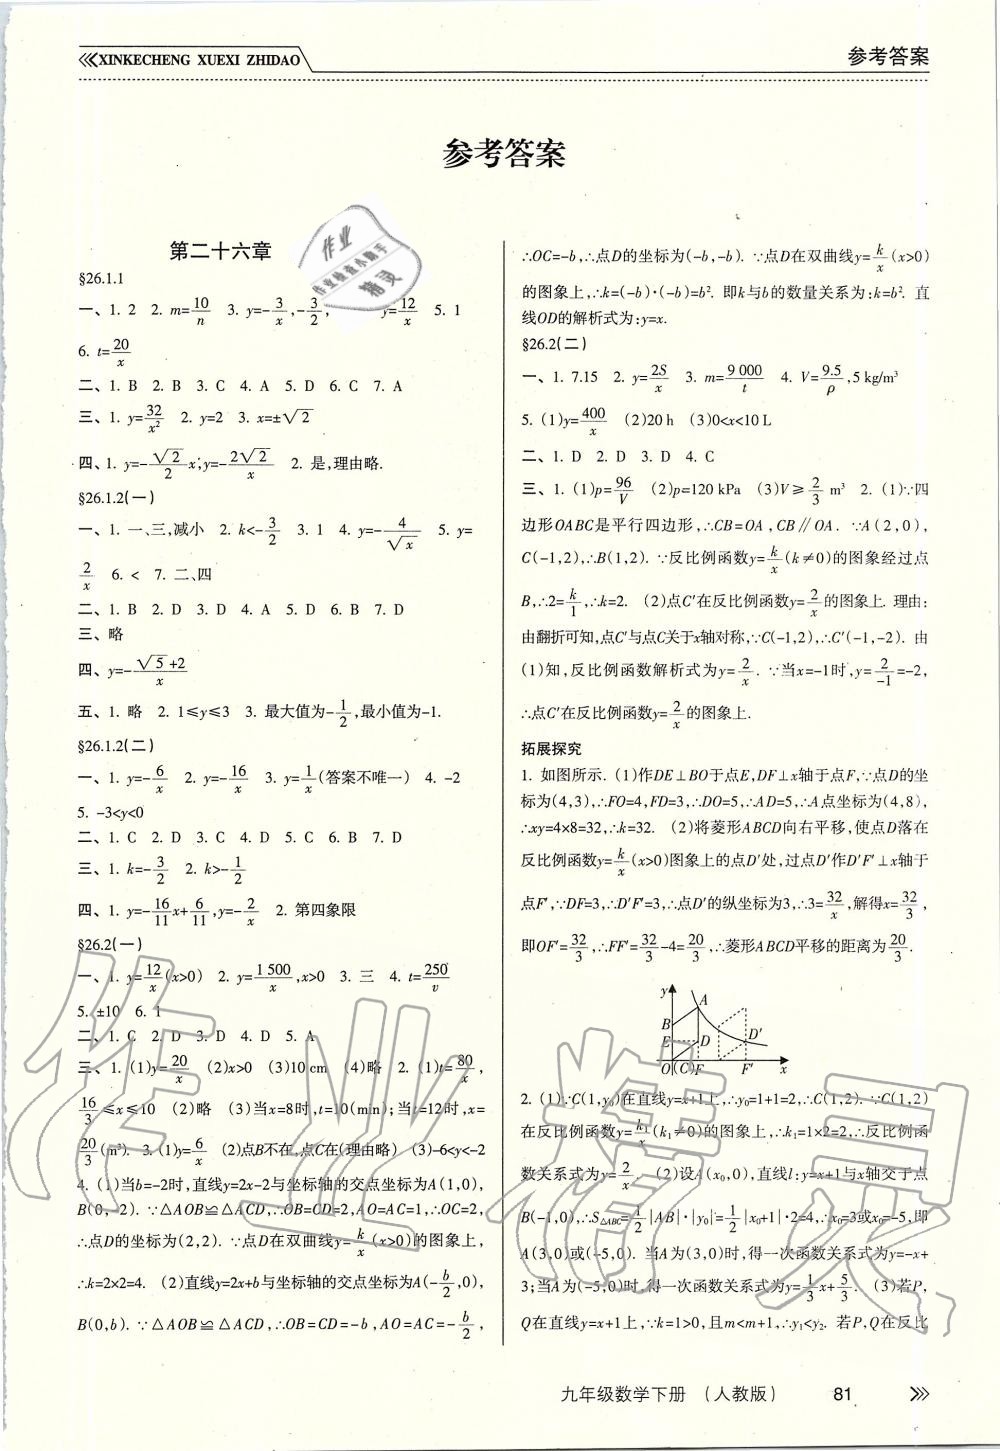 XINKECHENG XUEXI ZHIDAO
参考答案
参考答案
第二十六章
§26.1.1
一、1. 2 2. m=10/n 3. y=-3/x,-3/2, y=12/x 5. 1
6. t=20/x
二、1. B 2. B 3. C 4. A 5. D 6. C 7. A
三、1. y=32/x² 2. y=2 3. x=±√2
四、1. y=-√2/2 x;y=-2√2/x 2. 是,理由略.
§26.1.2(一)
一、1. 一、三,减小 2. k<-3/2 3. 1 4. y=-4/√x 5. y=
2/x 6. < 7. 二、四
二、1. B 2. D 3. D 4. A 5. D 6. B 7. D
三、略
四、y=-√5+2/x
五、1. 略 2. 1≤y≤3 3. 最大值为-1/2,最小值为-1.
§26.1.2(二)
一、1. y=-6/x 2. y=-16/x 3. y=1/x(答案不唯一) 4. -2
5. -3<y<0
二、1. C 2. D 3. C 4. D 5. C 6. B 7. D
三、1. k=-3/2 2. k>-1/2
四、1. y=-16/11 x+6/11,y=-2/x 2. 第四象限
§26.2(一)
一、1. y=12/x(x>0) 2. y=1 500/x,x>0 3. 三 4. t=250/v
5. ±10 6. 1
二、1. C 2. D 3. D 4. D 5. A
三、1. (1)y=20/x (2)x>0 (3)10 cm (4)略 2. (1)t=80/x,
16/3≤x≤10 (2)略 (3)当x=8时,t=10(min);当t=12时,x=
20/3(m³). 3. (1)y=6/x (2)点B不在,点C在(理由略) (3)-6<y<-2
4. (1)当b=-2时,直线y=2x-2与坐标轴的交点坐标为A(1,0),
B(0,-2). ∵△AOB≌△ACD,∴OB=CD=2,AO=AC=1,∴OC=2,
∴点D的坐标为(2,2). ∵点D在双曲线y=k/x(x>0)的图象上,
∴k=2×2=4. (2)直线y=2x+b与坐标轴的交点坐标为A(-b/2,0),
B(0,b). ∵△AOB≌△ACD,∴OB=CD=-b,AO=AC=-b/2,
∴OC=-b,∴点D的坐标为(-b,-b). ∵点D在双曲线y=k/x(x>0)
的图象上,∴k=(-b)·(-b)=b². 即k与b的数量关系为:k=b². 直
线OD的解析式为:y=x.
§26.2(二)
一、1. 7.15 2. y=2S/x 3. m=9 000/t 4. V=9.5/ρ,5 kg/m³
5. (1)y=400/x (2)20 h (3)0<x<10 L
二、1. D 2. D 3. D 4. C
三、1. (1)p=96/V (2)p=120 kPa (3)V≥2/3 m³ 2. (1)∵四
边形OABC是平行四边形,∴CB=OA,CB∥OA. ∵A(2,0),
C(-1,2),∴B(1,2). ∵反比例函数y=k/x(k≠0)的图象经过点
B,∴2=k/1,∴k=2. (2)点C′在反比例函数y=2/x的图象上. 理由:
由翻折可知,点C′与点C关于x轴对称,∵C(-1,2),∴C′(-1,-2). 由
(1)知,反比例函数解析式为y=2/x. ∵当x=-1时,y=2/-1=-2,
∴点C′在反比例函数y=2/x的图象上.
拓展探究
1. 如图所示. (1)作DE⊥BO于点E,DF⊥x轴于点F,∵点D的坐
标为(4,3),∴FO=4,FD=3,∴DO=5,∴AD=5,∴A点坐标为(4,8),
∴xy=4×8=32,∴k=32. (2)将菱形ABCD向右平移,使点D落在
反比例函数y=k/x(x>0)图象上的点D′处,过点D′作D′F′⊥x轴于
点F′,∵DF=3,∴D′F′=3,∴点D′的纵坐标为3,∴3=32/x,解得x=32/3,
即OF′=32/3,∴FF′=32/3-4=20/3,∴菱形ABCD平移的距离为20/3.
y A
B
E D D′
O (C) F F′ x
2. (1)∵C(1,y₀)在直线y=x+1上,∴y₀=1+1=2,∴C(1,2). ∵C(1,2)
在反比例函数y=k₁/x(k₁≠0)的图象上,∴k₁=1×2=2,∴反比例函
数关系式为y=2/x. (2)设A(x₀,0),直线l:y=x+1与x轴交于点
B(-1,0),∴S△ABC=1/2|AB|·|y₀|=1/2|x₀+1|·2=4,∴x₀=3或x₀=-5,即
A(3,0)或(-5,0). 当A为(3,0)时,得一次函数关系式为y=-x+
3;当A为(-5,0)时,得一次函数关系式为y=1/3 x+5/3. (3)若P,
Q在直线y=x+1上,∵k=1>0,且m<m+1,∴y₁<y₂. 若P,Q在反比
九年级数学下册 (人教版) 81
作业
作业检查小助手
精灵
作业精灵